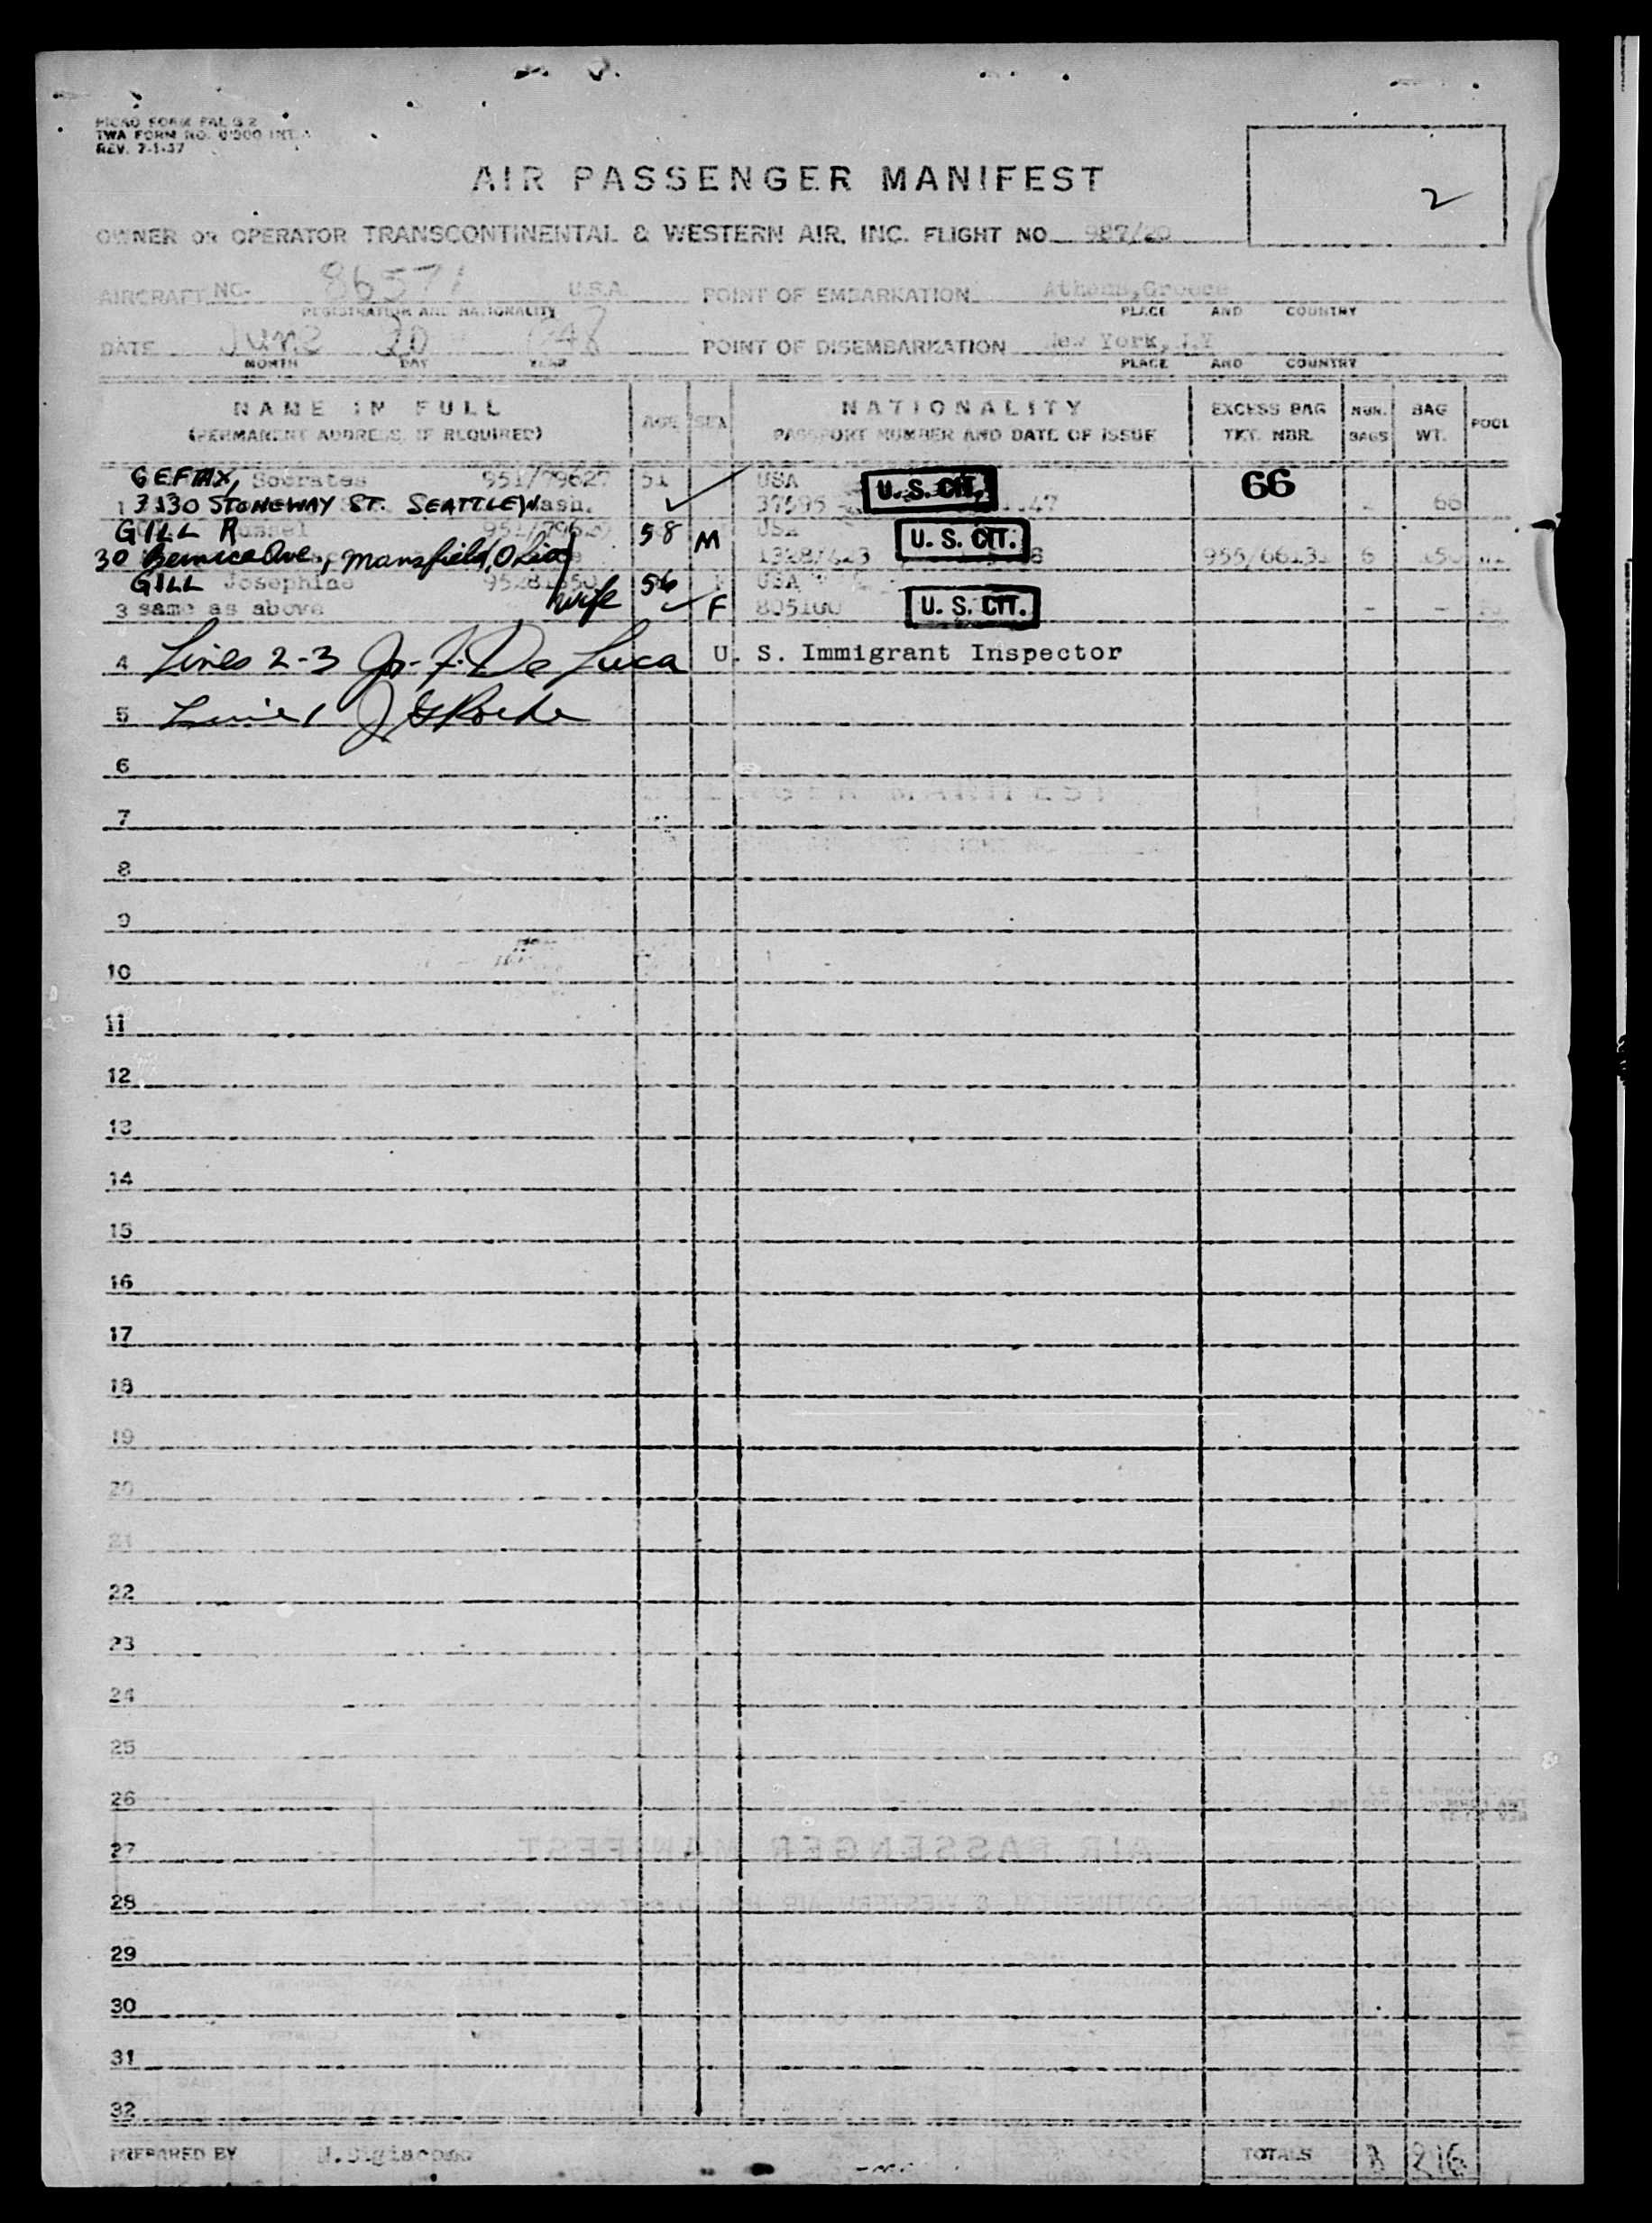 PICAO FORM FAL G 2
TWA FORM NO. 0-900 INT.
REV. 7-1-47
AIR PASSENGER MANIFEST
2
OWNER OR OPERATOR TRANSCONTINENTAL & WESTERN AIR, INC. FLIGHT NO 987/20
AIRCRAFT NC- 86571 U.S.A. POINT OF EMBARKATION Athens,Greece
REGISTRATION AND NATIONALITY PLACE AND COUNTRY
DATE June 20 1948 POINT OF DISEMBARKATION New York, N.Y
MONTH DAY YEAR PLACE AND COUNTRY
NAME IN FULL AGE SEX NATIONALITY EXCESS BAG NUM. BAG POOL
(PERMANENT ADDRESS, IF REQUIRED) PASSPORT NUMBER AND DATE OF ISSUE TKT. NBR. BAGS WT.
GEFTAX, Socrates 951/79627 51 USA U. S. CIT. 66
1 3130 STONEWAY ST. SEATTLE, Wash. 37595 47 - 66
GILL R 58 M USA U. S. CIT.
30 Bernice Ave., Mansfield, Ohio 955/66131 6 150
GILL Josephine 56 USA
3 same as above wife F 805100 U. S. CIT. - -
4 Lines 2-3 De Luca U. S. Immigrant Inspector
5 Line 1 J G Roche
6
7
8
9
10
11
12
13
14
15
16
17
18
19
20
21
22
23
24
25
26
27
28
29
30
31
32
PREPARED BY TOTALS 216